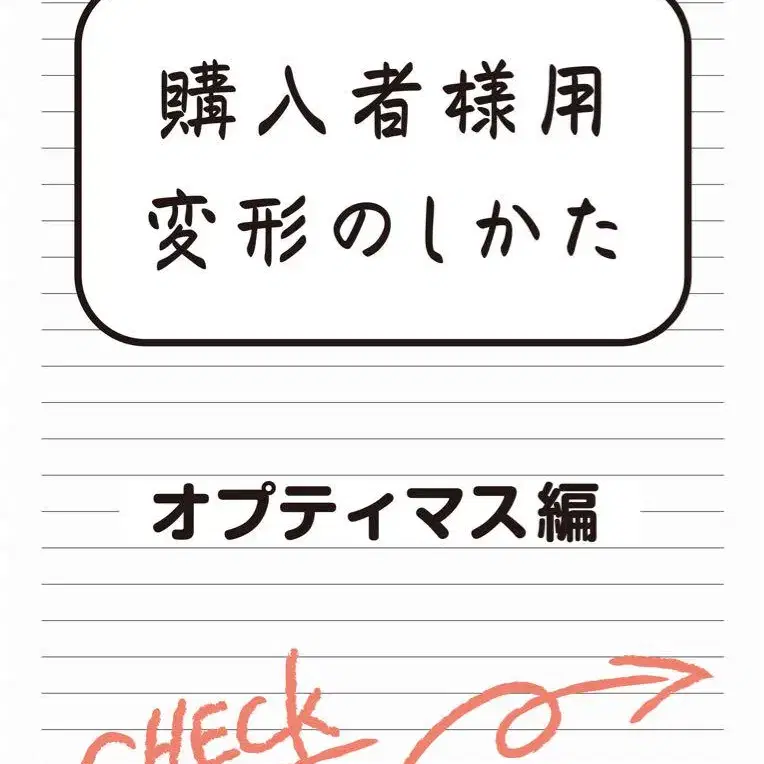 購入者様用
変形のしかた
オプティマス編
CHECK